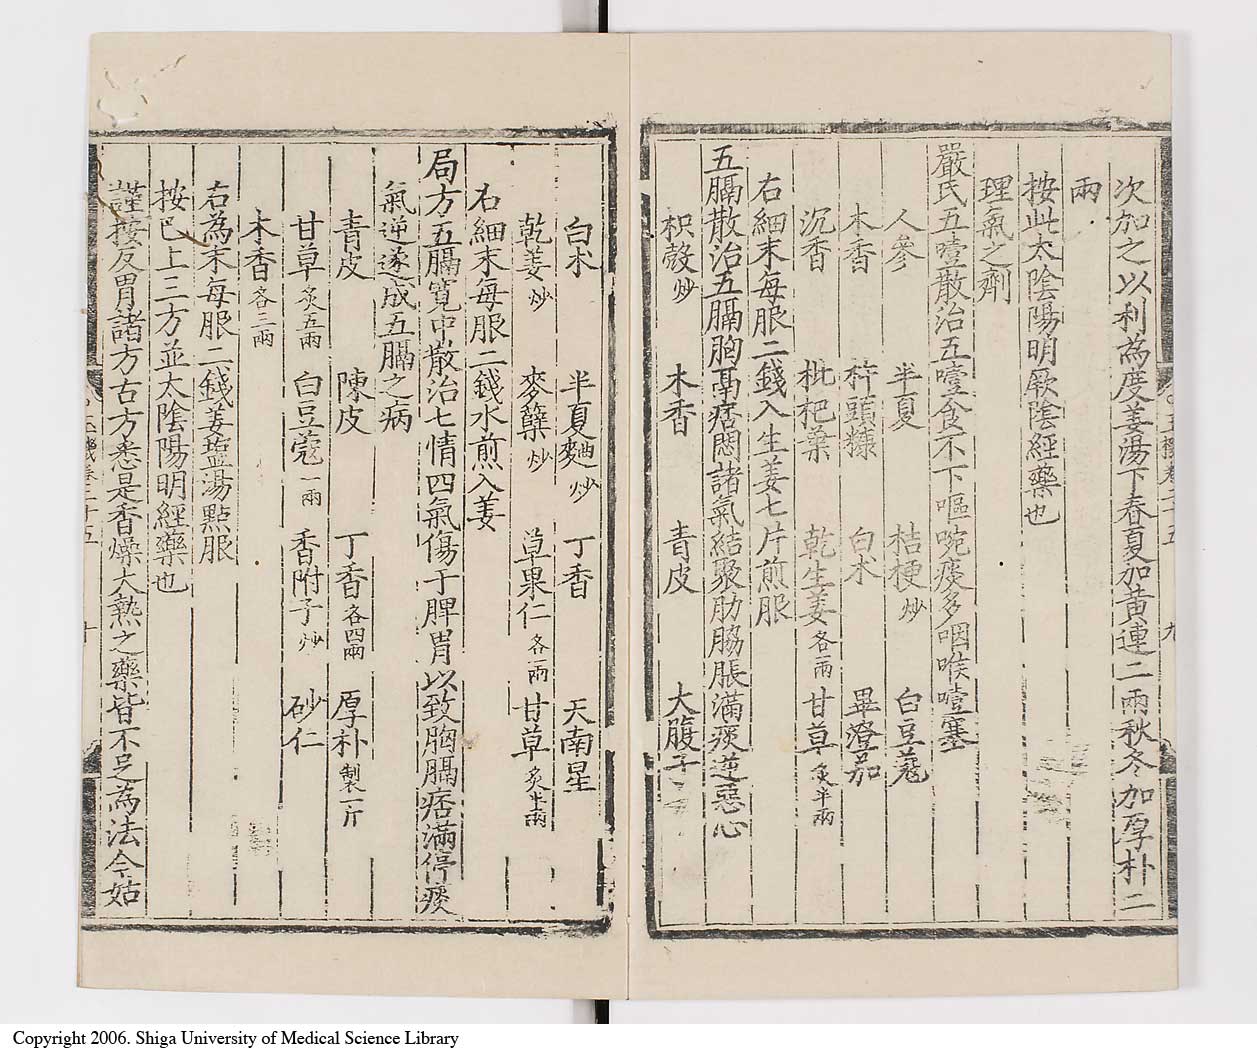 次加之以利為度姜湯下春夏加黄連二兩秋冬加厚朴二
兩
按此太陰陽明厥陰經藥也
理氣之劑
嚴氏五噎散治五噎食不下嘔啘痰多咽喉噎塞
人參 半夏 桔梗炒 白豆蔲
木香 杵頭糠 白朮 蓽澄茄
沉香 枇杷葉 乾生姜各一兩 甘草炙半兩
右細末每服二錢入生姜七片煎服
五膈散治五膈胸鬲痞悶諸氣結聚肋脇脹滿痰逆惡心
枳殼炒 木香 青皮 大腹子
白朮 半夏麯炒 丁香 天南星
乾姜炒 麥糵炒 草果仁各一兩 甘草炙半兩
右細末每服二錢水煎入姜
局方五膈寬中散治七情四氣傷于脾胃以致胸膈痞滿停痰
氣逆遂成五膈之病
青皮 陳皮 丁香各四兩 厚朴製一斤
甘草炙五兩 白豆蔲一兩 香附子炒 砂仁
木香各三兩
右為末每服二錢姜鹽湯點服
按巳上三方並太陰陽明經藥也
謹按反胃諸方古方悉是香燥大熱之藥皆不足為法今姑
Copyright 2006. Shiga University of Medical Science Library